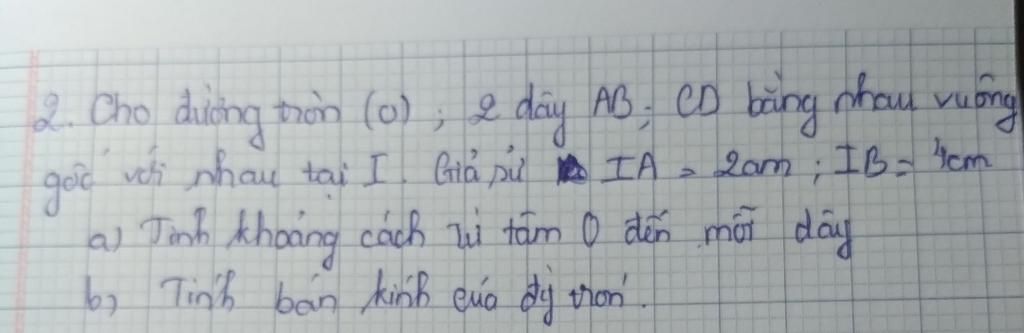 2. Cho đường tròn (O) ; 2 dây AB ; CD bằng nhau vuông
góc với nhau tại I. Giả sử IA = 2cm ; IB = 4cm
a) Tính khoảng cách từ tâm O đến mỗi dây
b) Tính bán kính của đg tròn.